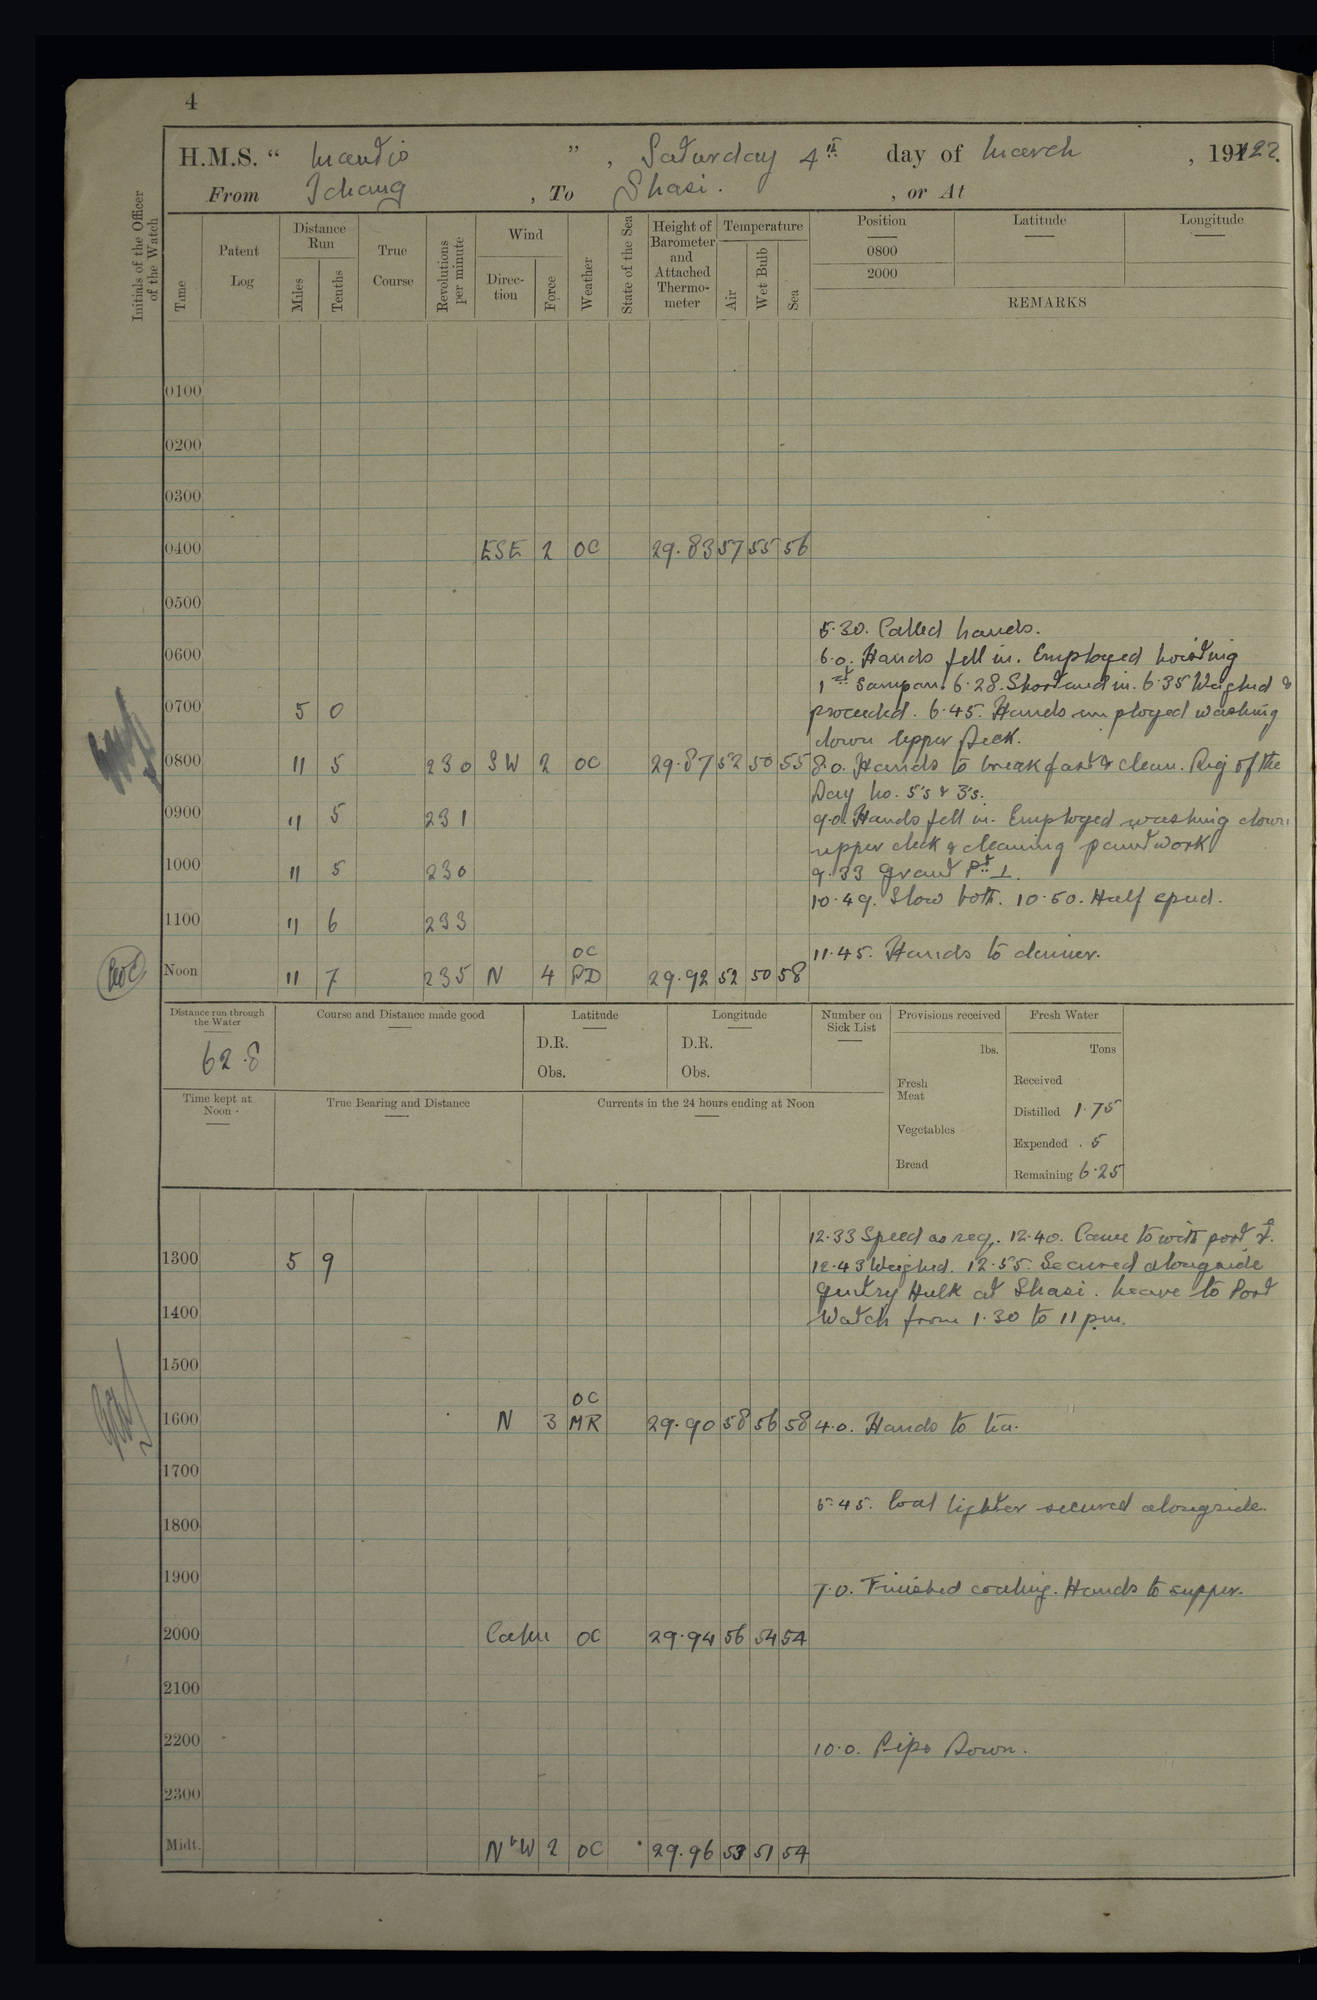 4
H.M.S. “ Mantis ” , Saturday 4th day of March , 1922.
From Ichang , To Shasi. , or At
Initials of the Officer of the Watch
Time
Patent Log
Distance Run
Miles
Tenths
True Course
Revolutions per minute
Wind
Direc-tion
Force
Weather
State of the Sea
Height of Barometer and Attached Thermo-meter
Temperature
Air
Wet Bulb
Sea
Position
0800
2000
Latitude
Longitude
REMARKS
0100
0200
0300
0400 ESE 2 OC 29.83 57 55 56
0500
5.30. Called hands.
0600 6.0. Hands fell in. Employed hoisting
1st Sampan. 6.28. Shortened in. 6.35 Weighed &
0700 5 0 proceeded. 6.45. Hands employed washing
down Upper Deck.
0800 11 5 230 SW 2 OC 29.87 52 50 55 8.0. Hands to breakfast & clean. Rig of the
Day No. 5's & 3's.
0900 11 5 231 9.0. Hands fell in. Employed washing down
upper deck & cleaning paintwork
1000 11 5 230 9.33 Grant Pt ⊥.
10.49. Slow both. 10.50. Half speed.
1100 11 6 233
OC
11.45. Hands to dinner.
Noon 11 7 235 N 4 PD 29.92 52 50 58
Distance run through the Water
62.8
Course and Distance made good
Latitude
D.R.
Obs.
Longitude
D.R.
Obs.
Number on Sick List
Provisions received
lbs.
Fresh Meat
Vegetables
Bread
Fresh Water
Tons
Received
Distilled 1.75
Expended .5
Remaining 6.25
Time kept at Noon
True Bearing and Distance
Currents in the 24 hours ending at Noon
12.33 Speed as req. 12.40. Came to with port
1300 5 9 12.43 Weighed. 12.55. Secured alongside
Hulk at Shasi. Leave to Port
1400 Watch from 1.30 to 11 pm.
1500
OC
1600 N 3 MR 29.90 58 56 58 4.0. Hands to tea.
1700
5.45. Coal lighter secured alongside.
1800
1900 7.0. Finished coaling. Hands to supper.
2000 Calm OC 29.94 56 54 54
2100
2200 10.0. Pipe Down.
2300
Midt. NbW 2 OC 29.96 53 51 54